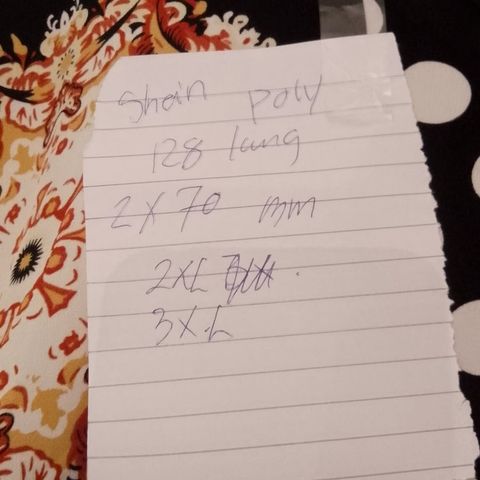 Shein poly
128 lang
2 X 70 mm
2XL
3X.L